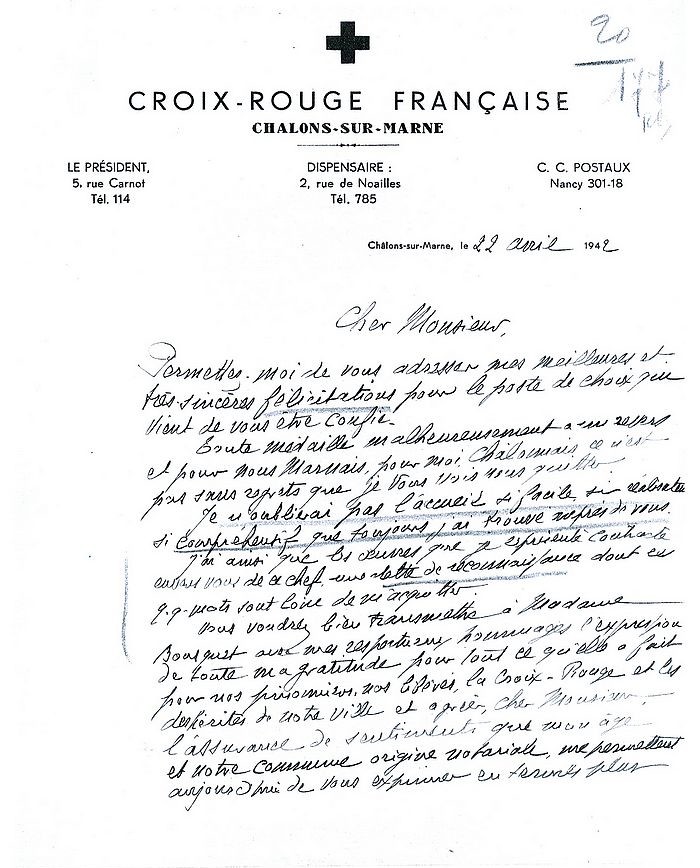 20
177
CROIX-ROUGE FRANÇAISE
CHALONS-SUR-MARNE
LE PRÉSIDENT,
5, rue Carnot
Tél. 114
DISPENSAIRE :
2, rue de Noailles
Tél. 785
C. C. POSTAUX
Nancy 301-18
Châlons-sur-Marne, le 22 avril 1942
Cher Monsieur,
Permettez-moi de vous adresser mes meilleures et
très sincères félicitations pour le poste de choix qui
vient de vous être confié.
Toute médaille malheureusement a un revers
et pour nous Marnais, pour moi, Chalonnais ce n'est
pas sans regrets que je vous vois nous quitter.
Je n'oublierai pas l'accueil si facile, si
si compréhensif que toujours j'ai trouvé auprès de vous.
J'ai ainsi que les œuvres que je représente contracté
envers vous de ce chef une dette de reconnaissance dont ces
q.q. mots sont loin de m'acquitter.
Vous voudrez bien transmettre à Madame
Bousquet avec mes respectueux hommages l'expression
de toute ma gratitude pour tout ce qu'elle a fait
pour nos prisonniers, nos la Croix-Rouge et les
déshérités de notre ville et agréer, cher Monsieur,
l'assurance de sentiments que mon âge
et notre commune origine notariale, me permettent
aujourd'hui de vous exprimer en termes plus